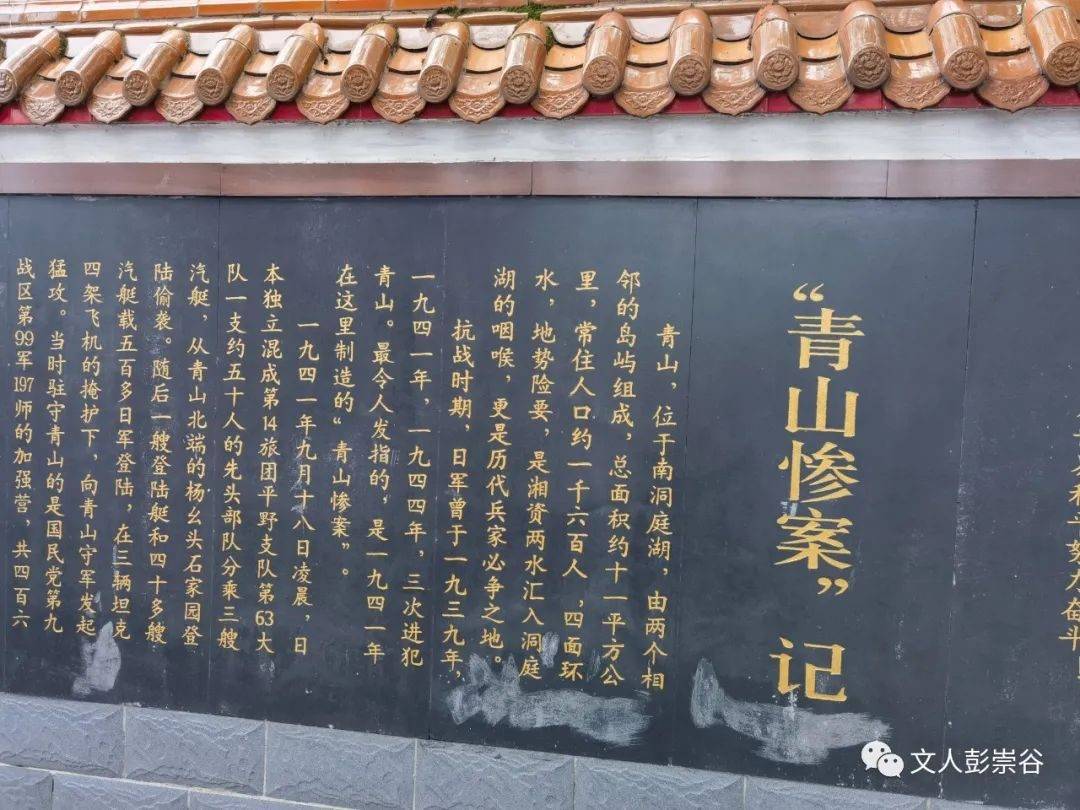 “青山惨案”记
青山，位于南洞庭湖，由两个相
邻的岛屿组成，总面积约十一平方公
里，常住人口约一千六百人，四面环
水，地势险要，是湘资两水汇入洞庭
湖的咽喉，更是历代兵家必争之地。
抗战时期，日军曾于一九三九年，
一九四一年，一九四四年，三次进犯
青山。最令人发指的，是一九四一年
在这里制造的“青山惨案”。
一九四一年九月十八日凌晨，日
本独立混成第14旅团平野支队第63大
队一支约五十人的先头部队分乘三艘
汽艇，从青山北端的杨幺头石家园登
陆偷袭。随后一艘登陆艇和四十多艘
汽艇载五百多日军登陆，在三辆坦克
四架飞机的掩护下，向青山守军发起
猛攻。当时驻守青山的是国民党第九
战区第99军197师的加强营，共四百六
文人彭崇谷